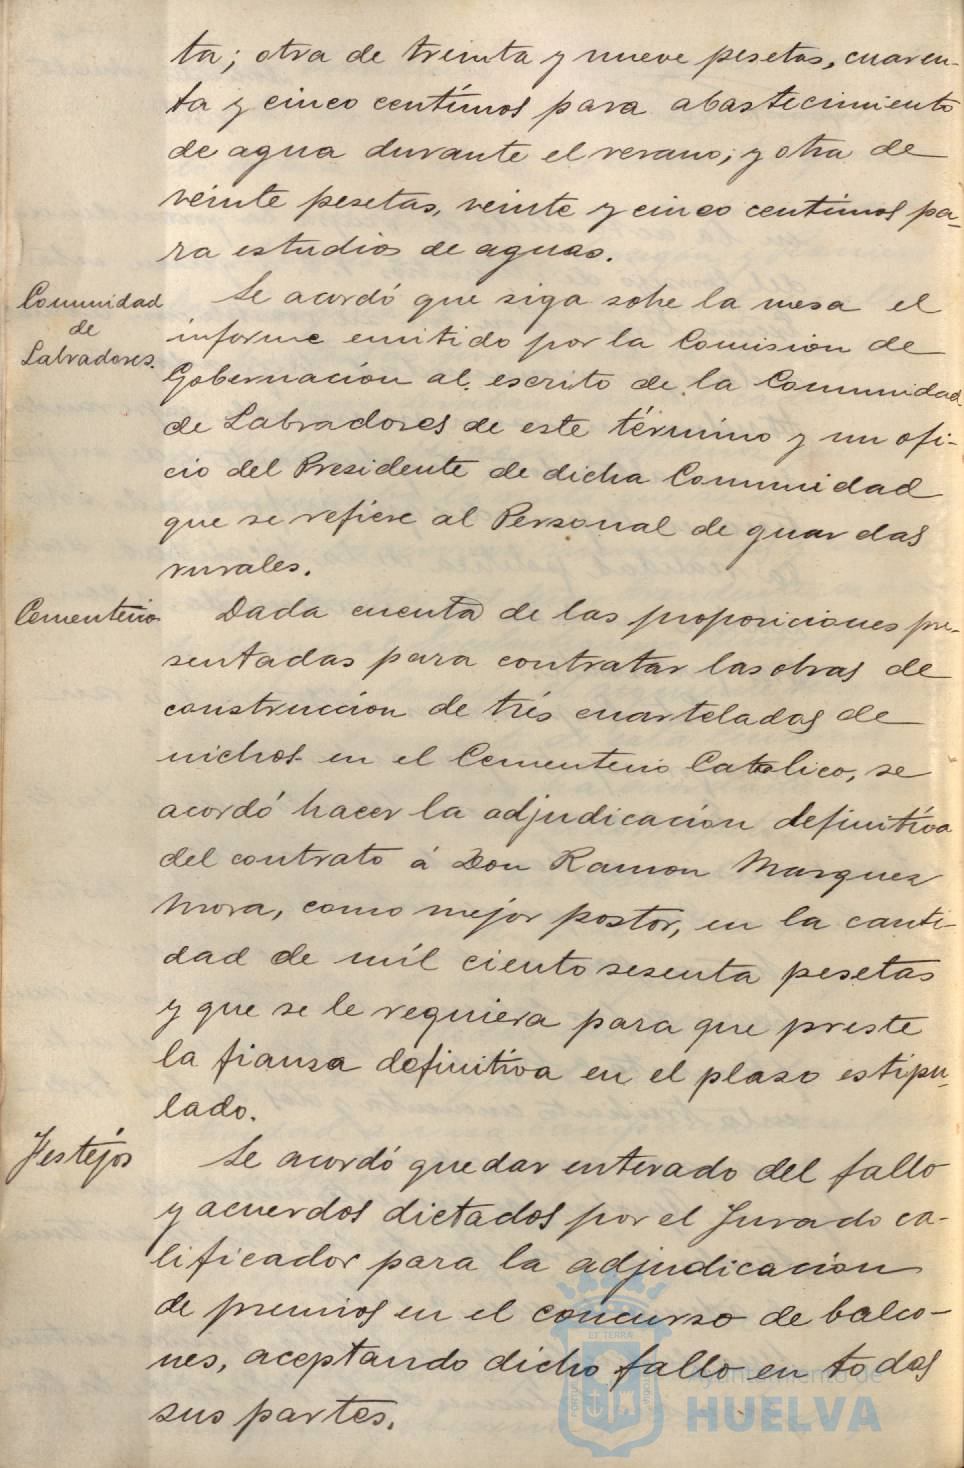 ta; otra de treinta y nueve pesetas, cuaren-
ta y cinco centímos para abastecimiento
de agua durante el verano; y otra de
veinte pesetas, veinte y cinco centimos pa-
ra estudios de aguas.
Comunidad
de
Labradores.
Se acordó que siga sobre la mesa el
informe emitido por la Comision de
Gobernacion al escrito de la Comunidad
de Labradores de este término y un ofi-
cio del Presidente de dicha Comunidad
que se refiere al Personal de guardas
rurales.
Cementerio
Dada cuenta de las proposiciones pre-
sentadas para contratar las obras de
construccion de trés cuarteladas de
nichos en el Cementerio Catolico, se
acordó hacer la adjudicacion definitiva
del contrato á Don Ramon Marquez
Mora, como mejor postor, en la canti-
dad de mil ciento sesenta pesetas
y que se le requiera para que preste
la fiansa definitiva en el plaso estipu-
lado.
Festéjos
Se acordó quedar enterado del fallo
y acuerdos dictados por el Jurado ca-
lificador para la adjudicacion
de premios en el concurso de balco-
nes, aceptando dicho fallo en todas
sus partes.
ET TERRA
Ayuntamiento de
HUELVA